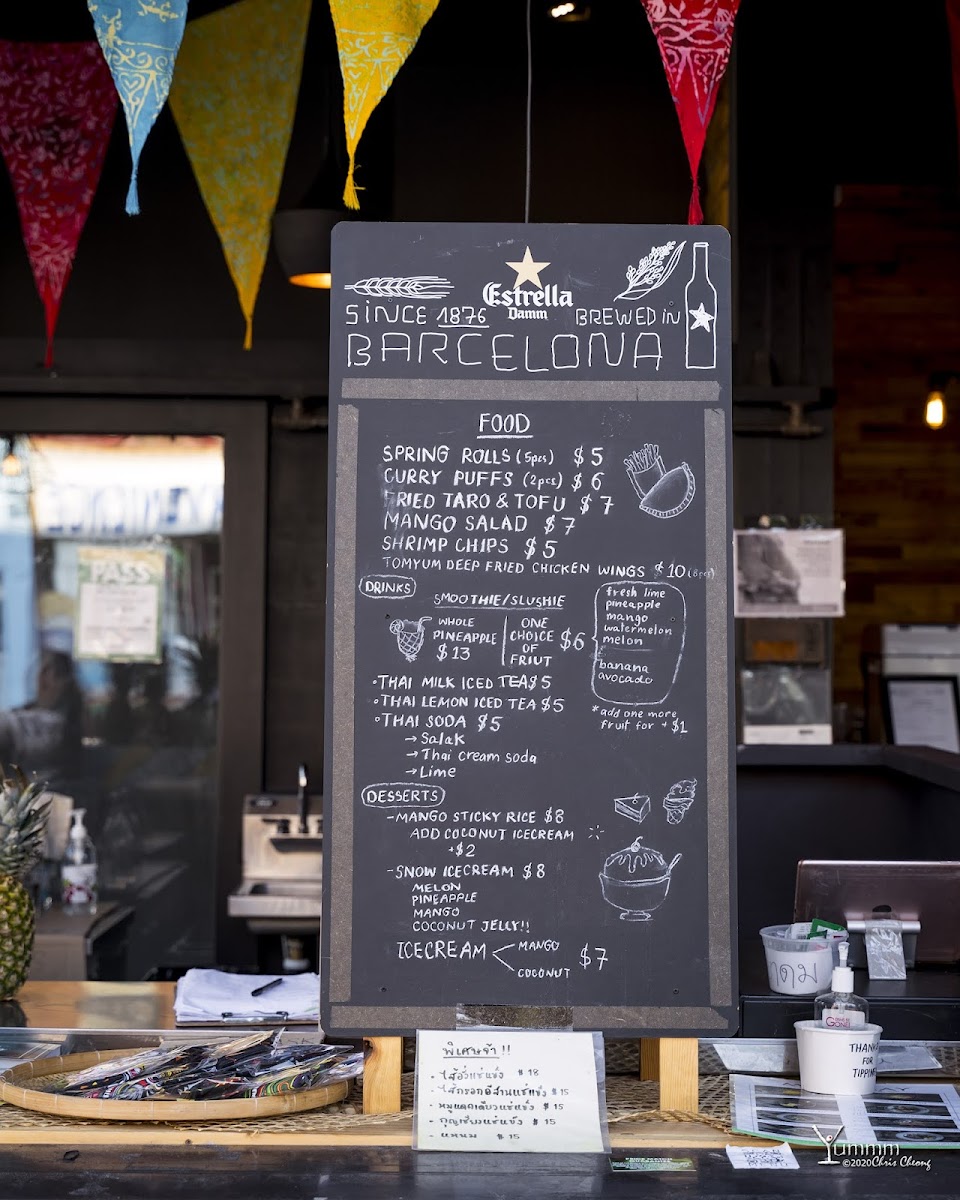 Estrella
Damm
SINCE 1876
BREWED IN
BARCELONA
FOOD
SPRING ROLLS (5pcs) $5
CURRY PUFFS (2pcs) $6
FRIED TARO & TOFU $7
MANGO SALAD $7
SHRIMP CHIPS $5
TOMYUM DEEP FRIED CHICKEN WINGS $10 (8pcs)
DRINKS
SMOOTHIE/SLUSHIE
WHOLE
PINEAPPLE
$13
ONE
CHOICE
OF
FRIUT
$6
fresh lime
pineapple
mango
watermelon
melon
banana
avocado
*add one more
fruit for +$1
•THAI MILK ICED TEA $5
•THAI LEMON ICED TEA $5
•THAI SODA $5
→Salak
→Thai cream soda
→Lime
DESSERTS
-MANGO STICKY RICE $8
ADD COCONUT ICECREAM
+$2
-SNOW ICECREAM $8
MELON
PINEAPPLE
MANGO
COCONUT JELLY!!
ICECREAM < MANGO
COCONUT
$7
PASS
พิเศษจ้า !!
-ไส้อั่วแช่แข็ง $18
-ไส้กรอกอีสานแช่แข็ง $15
-หมูแดดเดียวแช่แข็ง $15
-กุญเชียงแช่แข็ง $15
-แหนม $15
THANKS
FOR
TIPPING
Yummm
©2020 Chris Cheong